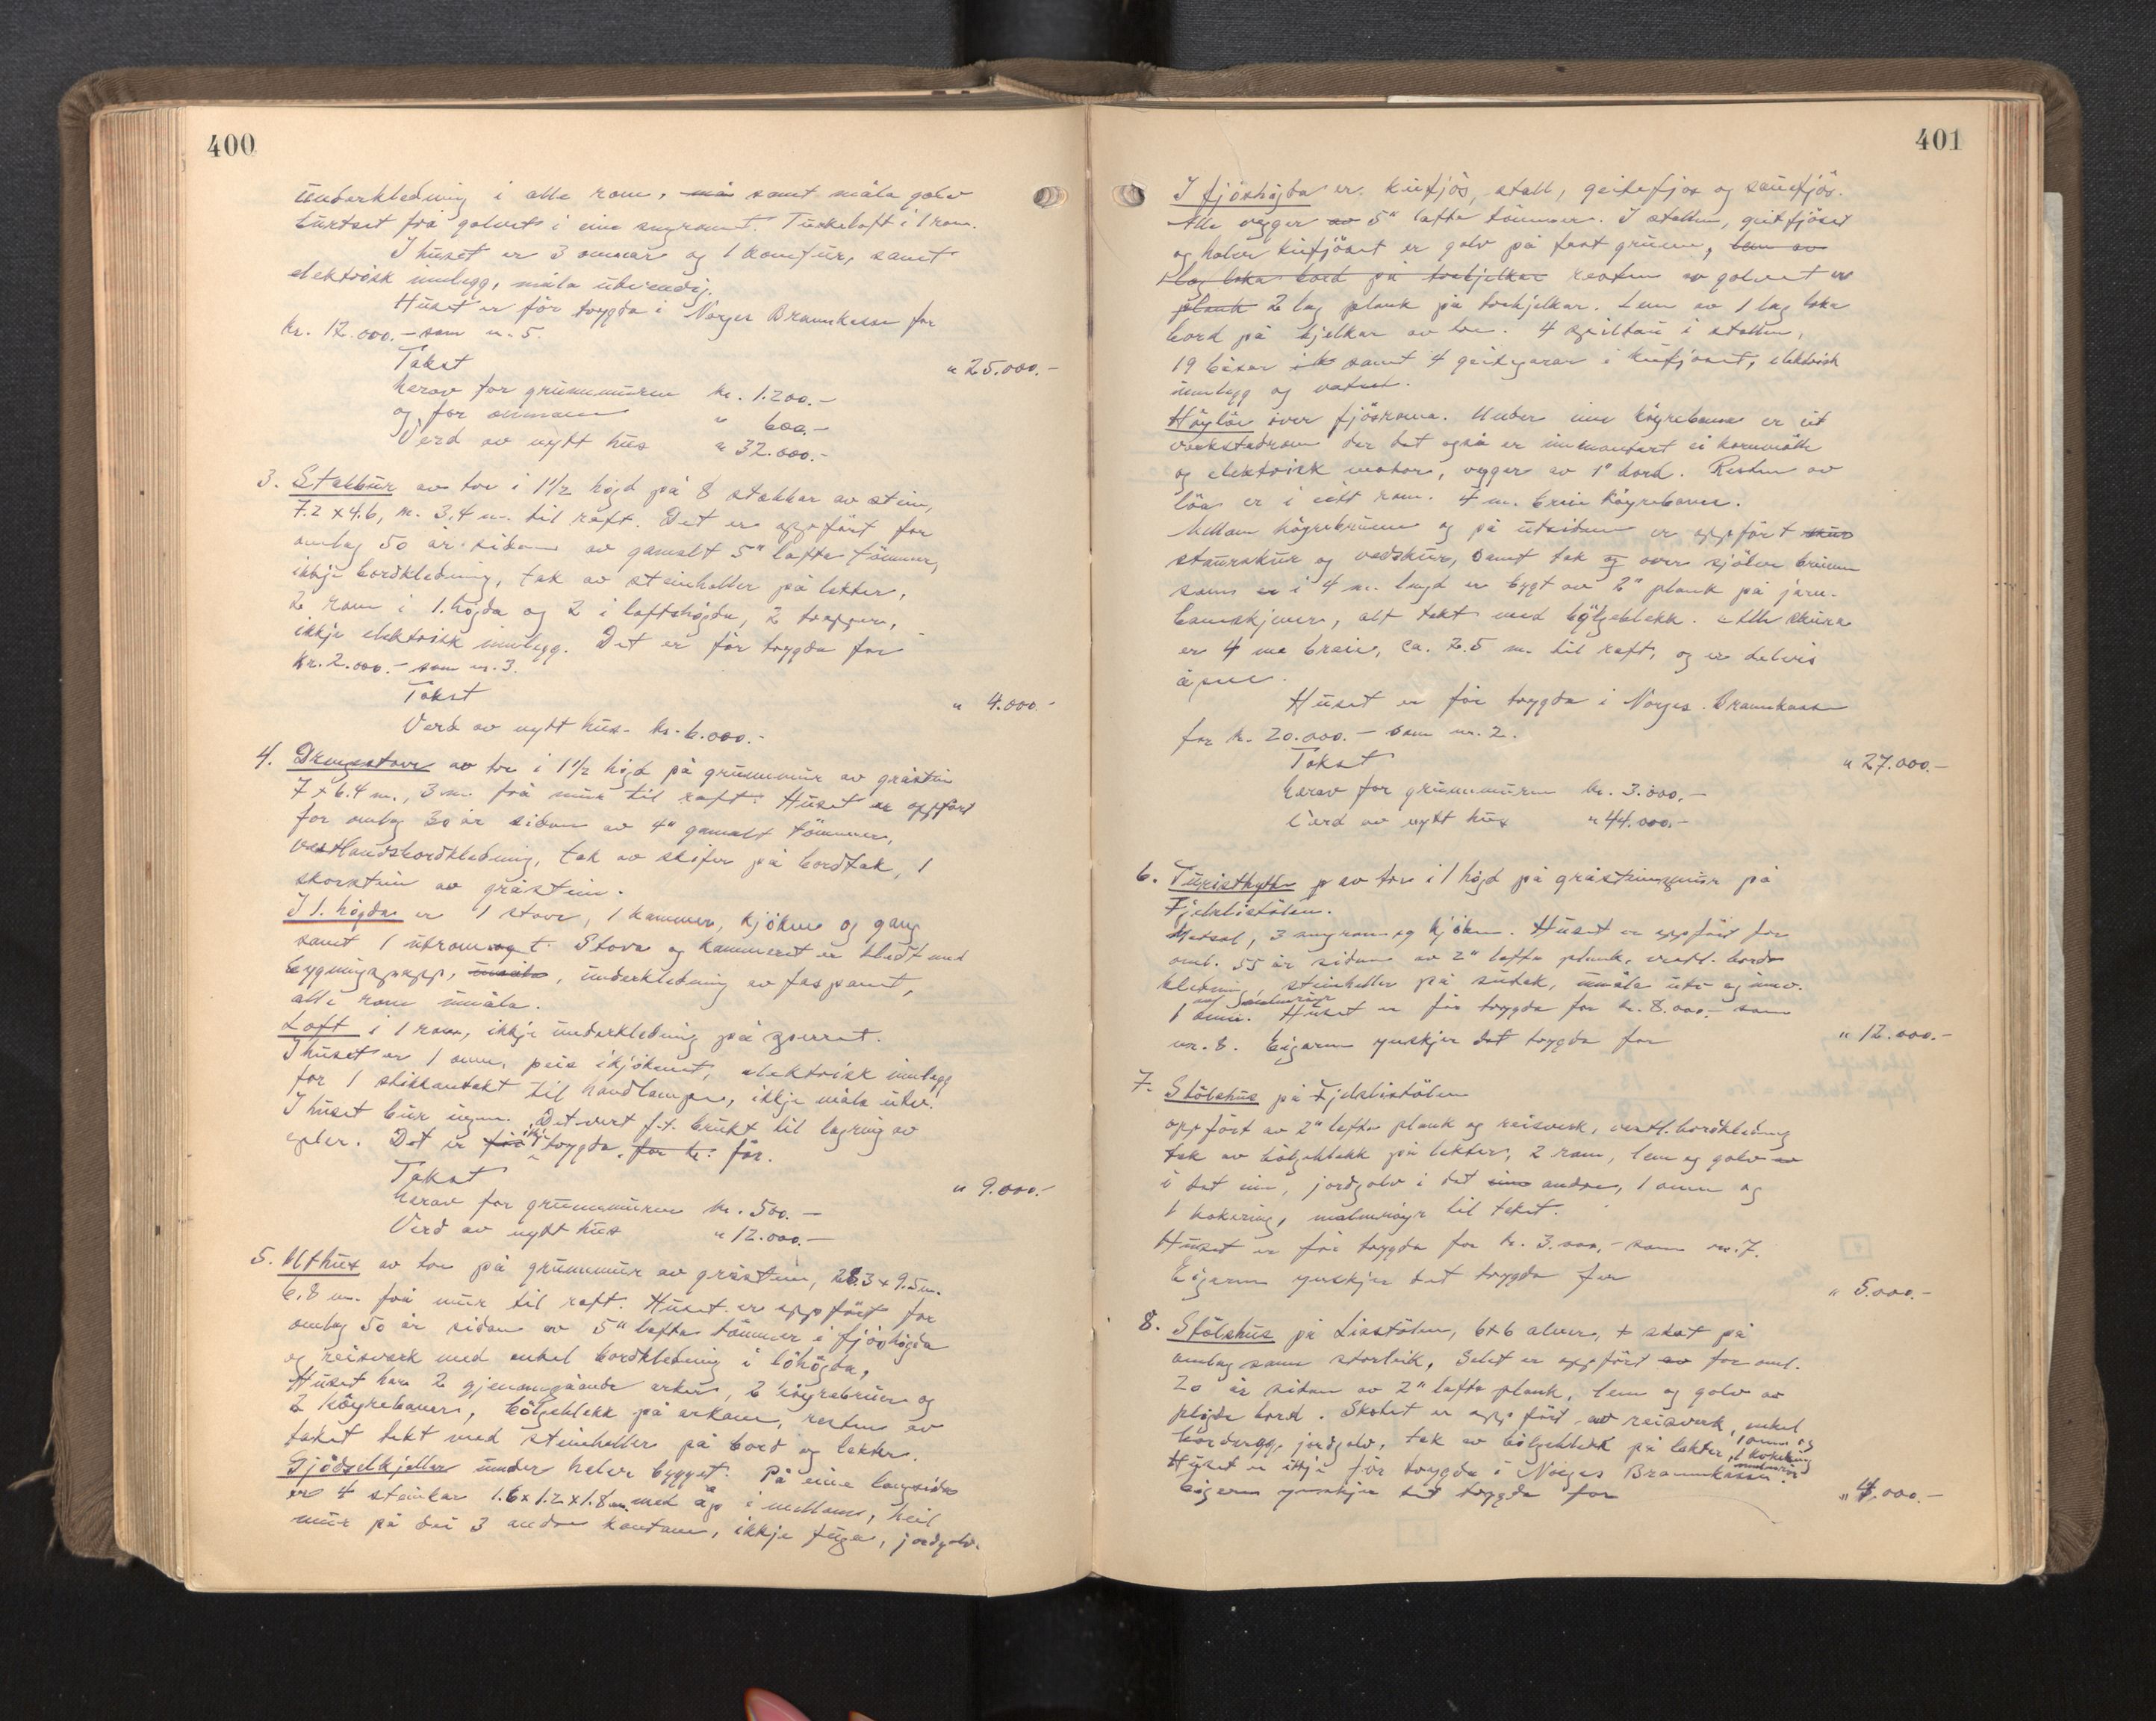 400
underkledning i alle rom, må samt måla golv
burtset frå golvet i eine sengromet. Turkeloft i 1 rom.
I huset er 3 omnar og 1 komfur, samt
elektrisk innlegg, måla utvendig.
Huset er för trygda i Norges Brannkasse for
kr. 12.000.- som nr. 5.
Takst " 25.000.-
herav for grunnmuren kr. 1.200.-
og for omnane " 600.-
Verd av nytt hus " 32.000.-
3. Stabbur av tre i 1 1/2 högd på 8 stabbar av stein,
7.2 x 4.6, m. 3.4 m. til raft. Det er oppfört for
omlag 50 år sidan av gamalt 5" lafta tömmer,
ikkje bordkledning, tak av steinheller på lekter,
2 rom i 1. högda og 2 i loftshögda, 2 trapper,
ikkje elektrisk innlegg. Det er för trygda for
kr. 2.000.- som nr. 3.
Takst " 4.000.-
Verd av nytt hus - kr. 6.000.-
4. Drengstove av tre i 1 1/2 högd på grunnmur av gråstein
7 x 6.4 m., 3 m. frå mur til raft. Huset er oppfört
for omlag 30 år sidan av 4" gamalt tömmer,
vestlandsbordkledning, tak av skifer på bordtak, 1
skorstein av gråstein.
I 1. högda er 1 stove, 1 kammer, kjöken og gang
samt 1 utrom. Stova og kammeret er kledt med
bygningspapp, underkledning av faspanel,
alle rom umåla.
Loft i 1 rom, ikkje underkledning på sperret.
I huset er 1 omn, peis i kjökenet, elektrisk innlegg
for 1 stikkontakt til handlampe, ikkje måla utv.
I huset bur ingen. Det vert f.t. brukt til lagring av
epler. Det er för ikkje trygda. for kr. för.
Takst " 9.000.-
herav for grunnmuren kr. 500.-
Verd av nytt hus " 12.000.-
5. Uthus av tre på grunnmur av gråstein, 28.3 x 9.5 m.
6.8 m. frå mur til raft. Huset er oppfört for
omlag 50 år sidan av 5" lafta tömmer i fjöshögda
og reisverk med enkel bordkledning i löhögda,
Huset har 2 gjennomgåande arker, 2 höyrebruer og
2 köyrebaner, bölgeblekk på arkane, resten av
taket tekt med steinheller på bord og lekter.
Gjödselkjeller under halve bygget. På eine langsida
er 4 steinkar 1.6 x 1.2 x 1.8 m. med åp i mellom, heil
mur på dei 3 andre kantane, ikkje fuga, jordgolv.
401
I fjöshögda er kufjös, stall, geitefjös og sauefjös.
Alle vegger av 5" lafta tömmer. I stallen, geitfjöset
og halve kufjöset er golv på fast grunn, lem av
1 lag loka bord på trebjelkar resten av golvet er
plank 2 lag plank på trebjelkar. Lem av 1 lag loka
bord på bjelkar av tre. 4 spiltau i stallen,
19 båsar samt 4 geitgarar i kufjöset, elektrisk
innlegg og vatn.
Höylöe över fjösromma. Under eine köyrebana er eit
verkstadrom der det også er innmontert ei kornmölle
og elektrisk motor, vegger av 1" bord. Resten av
löa er i eitt rom. 4 m. breie köyrebaner.
Mellom högrebruene og på utsidene er oppfört skur
staurskur og vedskur, samt tak og over sjölve bruene
som er i 4 m. lengd er bygt av 2" plank på jarn-
baneskjener, alt tekt med bölgeblekk. Alle skura
er 4 m breie, ca. 2.5 m. til raft, og er delvis
åpne.
Huset er för trygda i Norges Brannkasse
for kr. 20.000.- som nr. 2.
Takst " 27.000.-
herav for grunnmuren kr. 3.000.-
Verd av nytt hus " 44.000.-
6. Turisthytte p av tre i 1 högd på gråsteinsmur på
Fjellistölen.
Matsal, 3 sengrom og kjöken. Huset er oppfört for
oml. 55 år sidan av 2" lafta plank, vestl. bord-
kledning, steinheller på sutak, umåla ute og innv.
1 omn. m/ malmröyr Huset er för trygda for kr. 8.000.- som
nr. 8. Eigaren ynskjer det trygda for " 12.000.-
7. Stölshus på Fjellistölen
oppfört av 2" lafta plank og reisverk, vestl. bordkledning
tak av bölgeblekk på lekter, 2 rom, lem og golv av
i det eine, jordgolv i det eine andre, 1 omn og
1 kokering, malmröyr til taket.
Huset er för trygda for kr. 3.000,- som nr. 7.
Eigaren ynskjer det trygda for " 5.000.-
8. Stölshus på Liastölen, 6x6 alner, + skot på
omlag same storleik, Selet er oppfört av for oml.
20 år sidan av 2" lafta plank, lem og golv av
pløgde bord. Skotet er oppfört av reisverk, enkel
bordvegg, jordgolv, tak av bölgeblekk på lekter, 1 omn og 1 kokering malmrör
Huset er ikkje för trygda i Norges Brannkasse.
Eigaren ynskjer det trygda for " 4.000.-